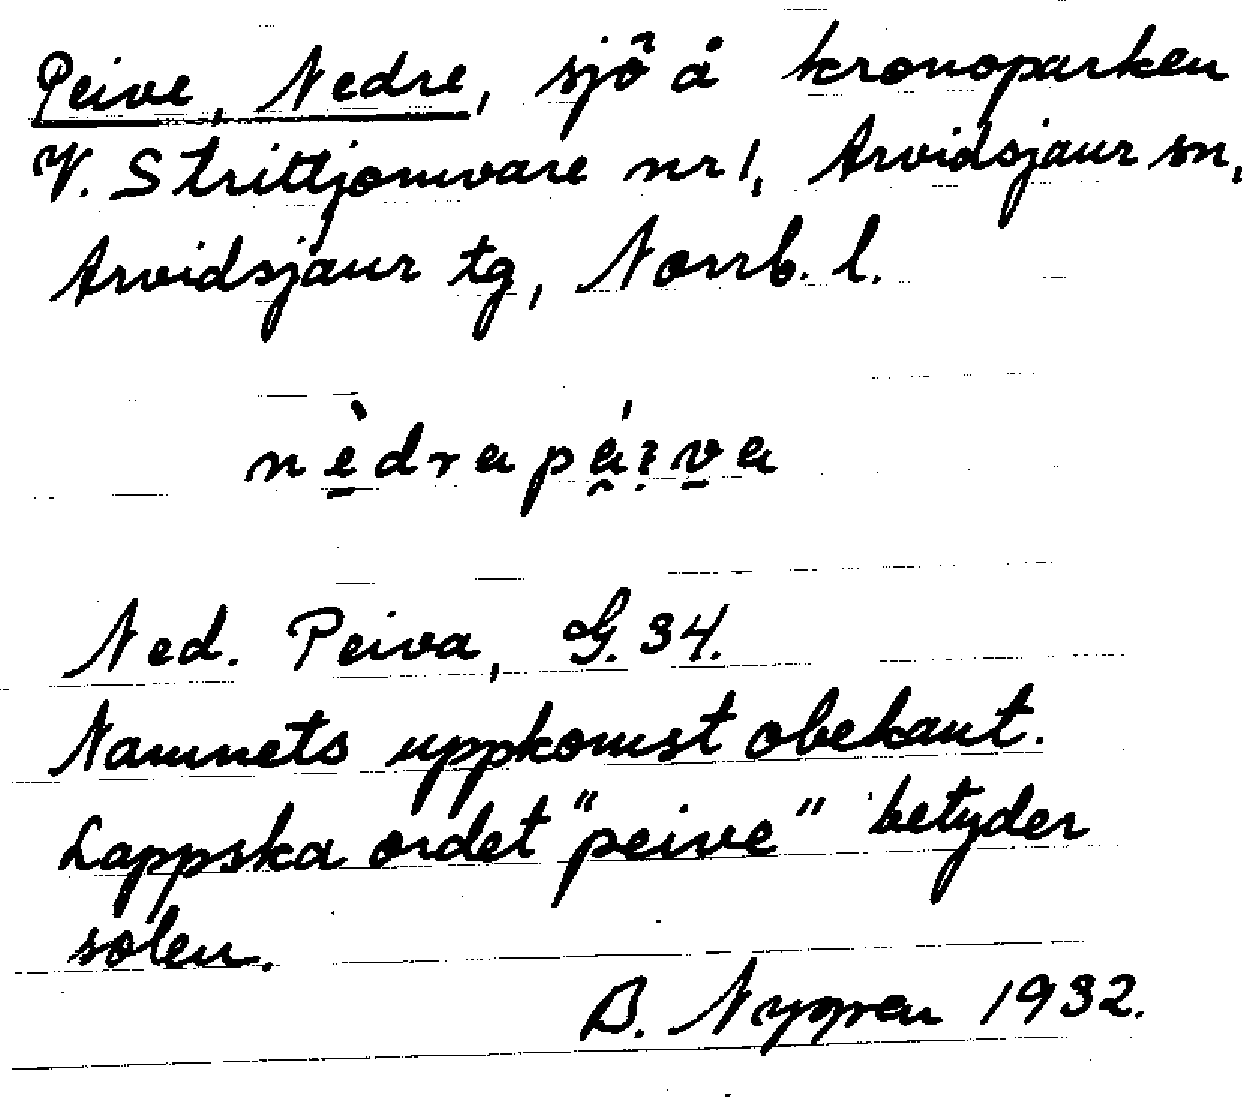 Peive, Nedre, sjö å kronoparken
V. Strittjomvare nr 1, Arvidsjaur sn,
Arvidsjaur tg, Norrb. l.
Ned. Peiva, G. 34.
Namnets uppkomst obekant.
Lappska ordet "peive" betyder
solen.
B. Nygren 1932.